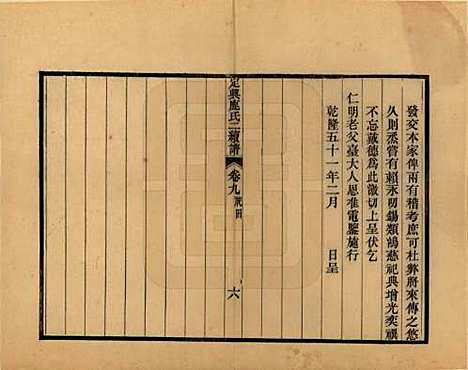 發交本家俾兩有稽考庶可杜弊將來傳之悠
久則烝嘗有賴永叨錫類鴻慈祀典增光奕禩
不忘戴德爲此激切上呈伏乞
仁明老父臺大人恩准電鑒施行
乾隆五十一年二月 日呈
定興鹿氏二續譜 卷九 祀田 六